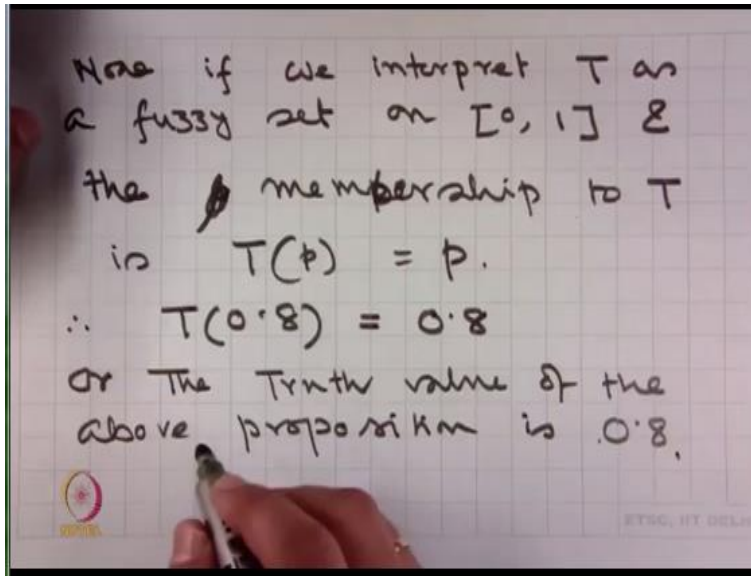 Now if we interpret T as
a fuzzy set on [0, 1] &
the membership to T
is T(p) = p.
∴ T(0.8) = 0.8
or The Truth value of the
above proposition is 0.8.
NPTEL
ETSC, IIT DELH